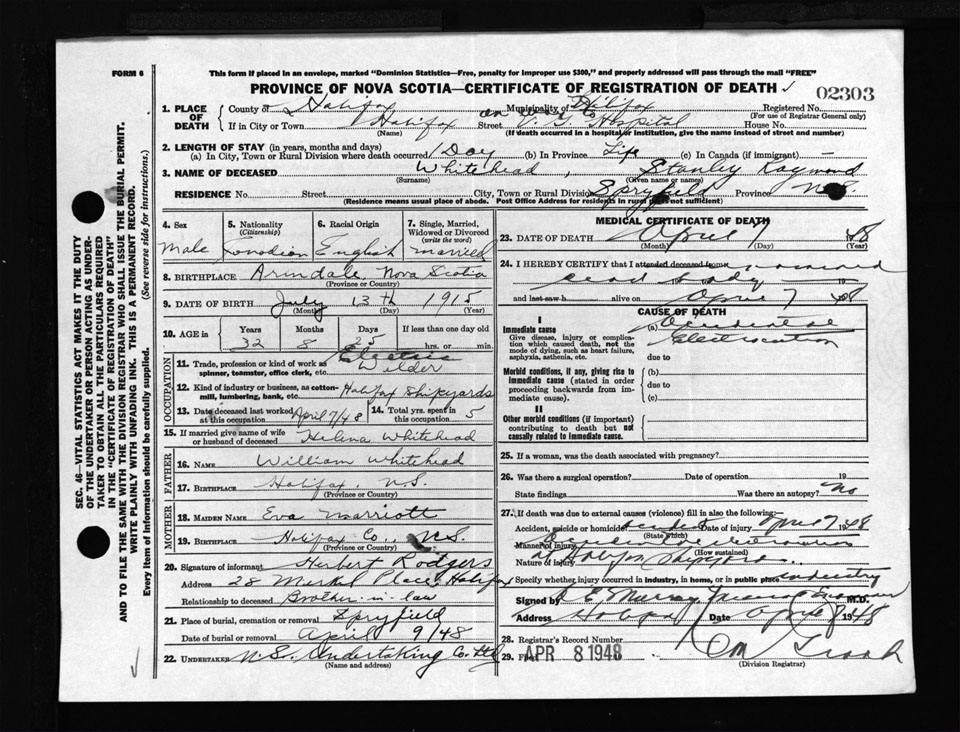 FORM 6
This form if placed in an envelope, marked "Dominion Statistics—Free, penalty for improper use $300," and properly addressed will pass through the mail "FREE"
PROVINCE OF NOVA SCOTIA—CERTIFICATE OF REGISTRATION OF DEATH
02303
SEC. 46—VITAL STATISTICS ACT MAKES IT THE DUTY
OF THE UNDERTAKER OR PERSON ACTING AS UNDER-
TAKER TO OBTAIN ALL THE PARTICULARS REQUIRED
IN THE "CERTIFICATE OF REGISTRATION OF DEATH"
AND TO FILE THE SAME WITH THE DIVISION REGISTRAR WHO SHALL ISSUE THE BURIAL PERMIT.
WRITE PLAINLY WITH UNFADING INK. THIS IS A PERMANENT RECORD.
Every item of Information should be carefully supplied. (See reverse side for instructions.)
1. PLACE OF DEATH
County of Halifax Municipality of Halifax Registered No.
(For use of Registrar General only)
If in City or Town Halifax Street V. G. Hospital House No.
(Name) (If death occurred in a hospital or institution, give the name instead of street and number)
2. LENGTH OF STAY (in years, months and days)
(a) In City, Town or Rural Division where death occurred 1 Day (b) In Province Life (c) In Canada (if immigrant) —
3. NAME OF DECEASED Whitehead, Stanley Raymond
(Surname) (Given name or names)
RESIDENCE No. Street City, Town or Rural Division Spryfield Province N.S.
(Residence means usual place of abode. Post Office Address for residents in rural parts not sufficient)
4. Sex
Male
5. Nationality (Citizenship)
Canadian
6. Racial Origin
English
7. Single, Married, Widowed or Divorced (write the word)
married
8. BIRTHPLACE Armdale, Nova Scotia
(Province or Country)
9. DATE OF BIRTH July 13th 1915
(Month) (Day) (Year)
10. AGE in Years Months Days If less than one day old
32 8 25 hrs. or min.
OCCUPATION
11. Trade, profession or kind of work as spinner, teamster, office clerk, etc. Electric Wilder
12. Kind of industry or business, as cotton-mill, lumbering, bank, etc. Halifax Shipyards
13. Date deceased last worked at this occupation April 7/48 14. Total yrs. spent in this occupation 5
15. If married give name of wife or husband of deceased Helena Whitehead
FATHER
16. NAME William Whitehead
17. BIRTHPLACE Halifax, N.S.
(Province or Country)
MOTHER
18. MAIDEN NAME Eva Marriott
19. BIRTHPLACE Halifax Co., N.S.
(Province or Country)
20. Signature of informant Herbert Rodgers
Address 28 Merkel Place, Halifax
Relationship to deceased Brother-in-law
21. Place of burial, cremation or removal Spryfield
Date of burial or removal April 9/48
22. UNDERTAKER N.S. Undertaking Co. Ltd
(Name and address)
MEDICAL CERTIFICATE OF DEATH
23. DATE OF DEATH April 7 1948
(Month) (Day) (Year)
24. I HEREBY CERTIFY that I attended deceased from
dead body 19
and last saw h alive on April 7 1948
CAUSE OF DEATH
I
Immediate cause
Give disease, injury or complication which caused death, not the mode of dying, such as heart failure, asphyxia, asthenia, etc.
(a) Accidental Electrocution
due to
Morbid conditions, if any, giving rise to immediate cause (stated in order proceeding backwards from immediate cause).
(b)
due to
(c)
II
Other morbid conditions (if important) contributing to death but not causally related to immediate cause.
25. If a woman, was the death associated with pregnancy?
26. Was there a surgical operation? Date of operation 19
State findings Was there an autopsy? No
27. If death was due to external causes (violence) fill in also the following:—
Accident, suicide or homicide? accident Date of injury April 7 1948
(State which)
Manner of injury Accidental electrocution
(How sustained)
Nature of injury at Halifax Shipyard
Specify whether injury occurred in industry, in home, or in public place industry
Signed by E. Murray M.D.
Address Halifax Date April 8 1948
28. Registrar's Record Number
29. Filed APR 8 1948
(Division Registrar)